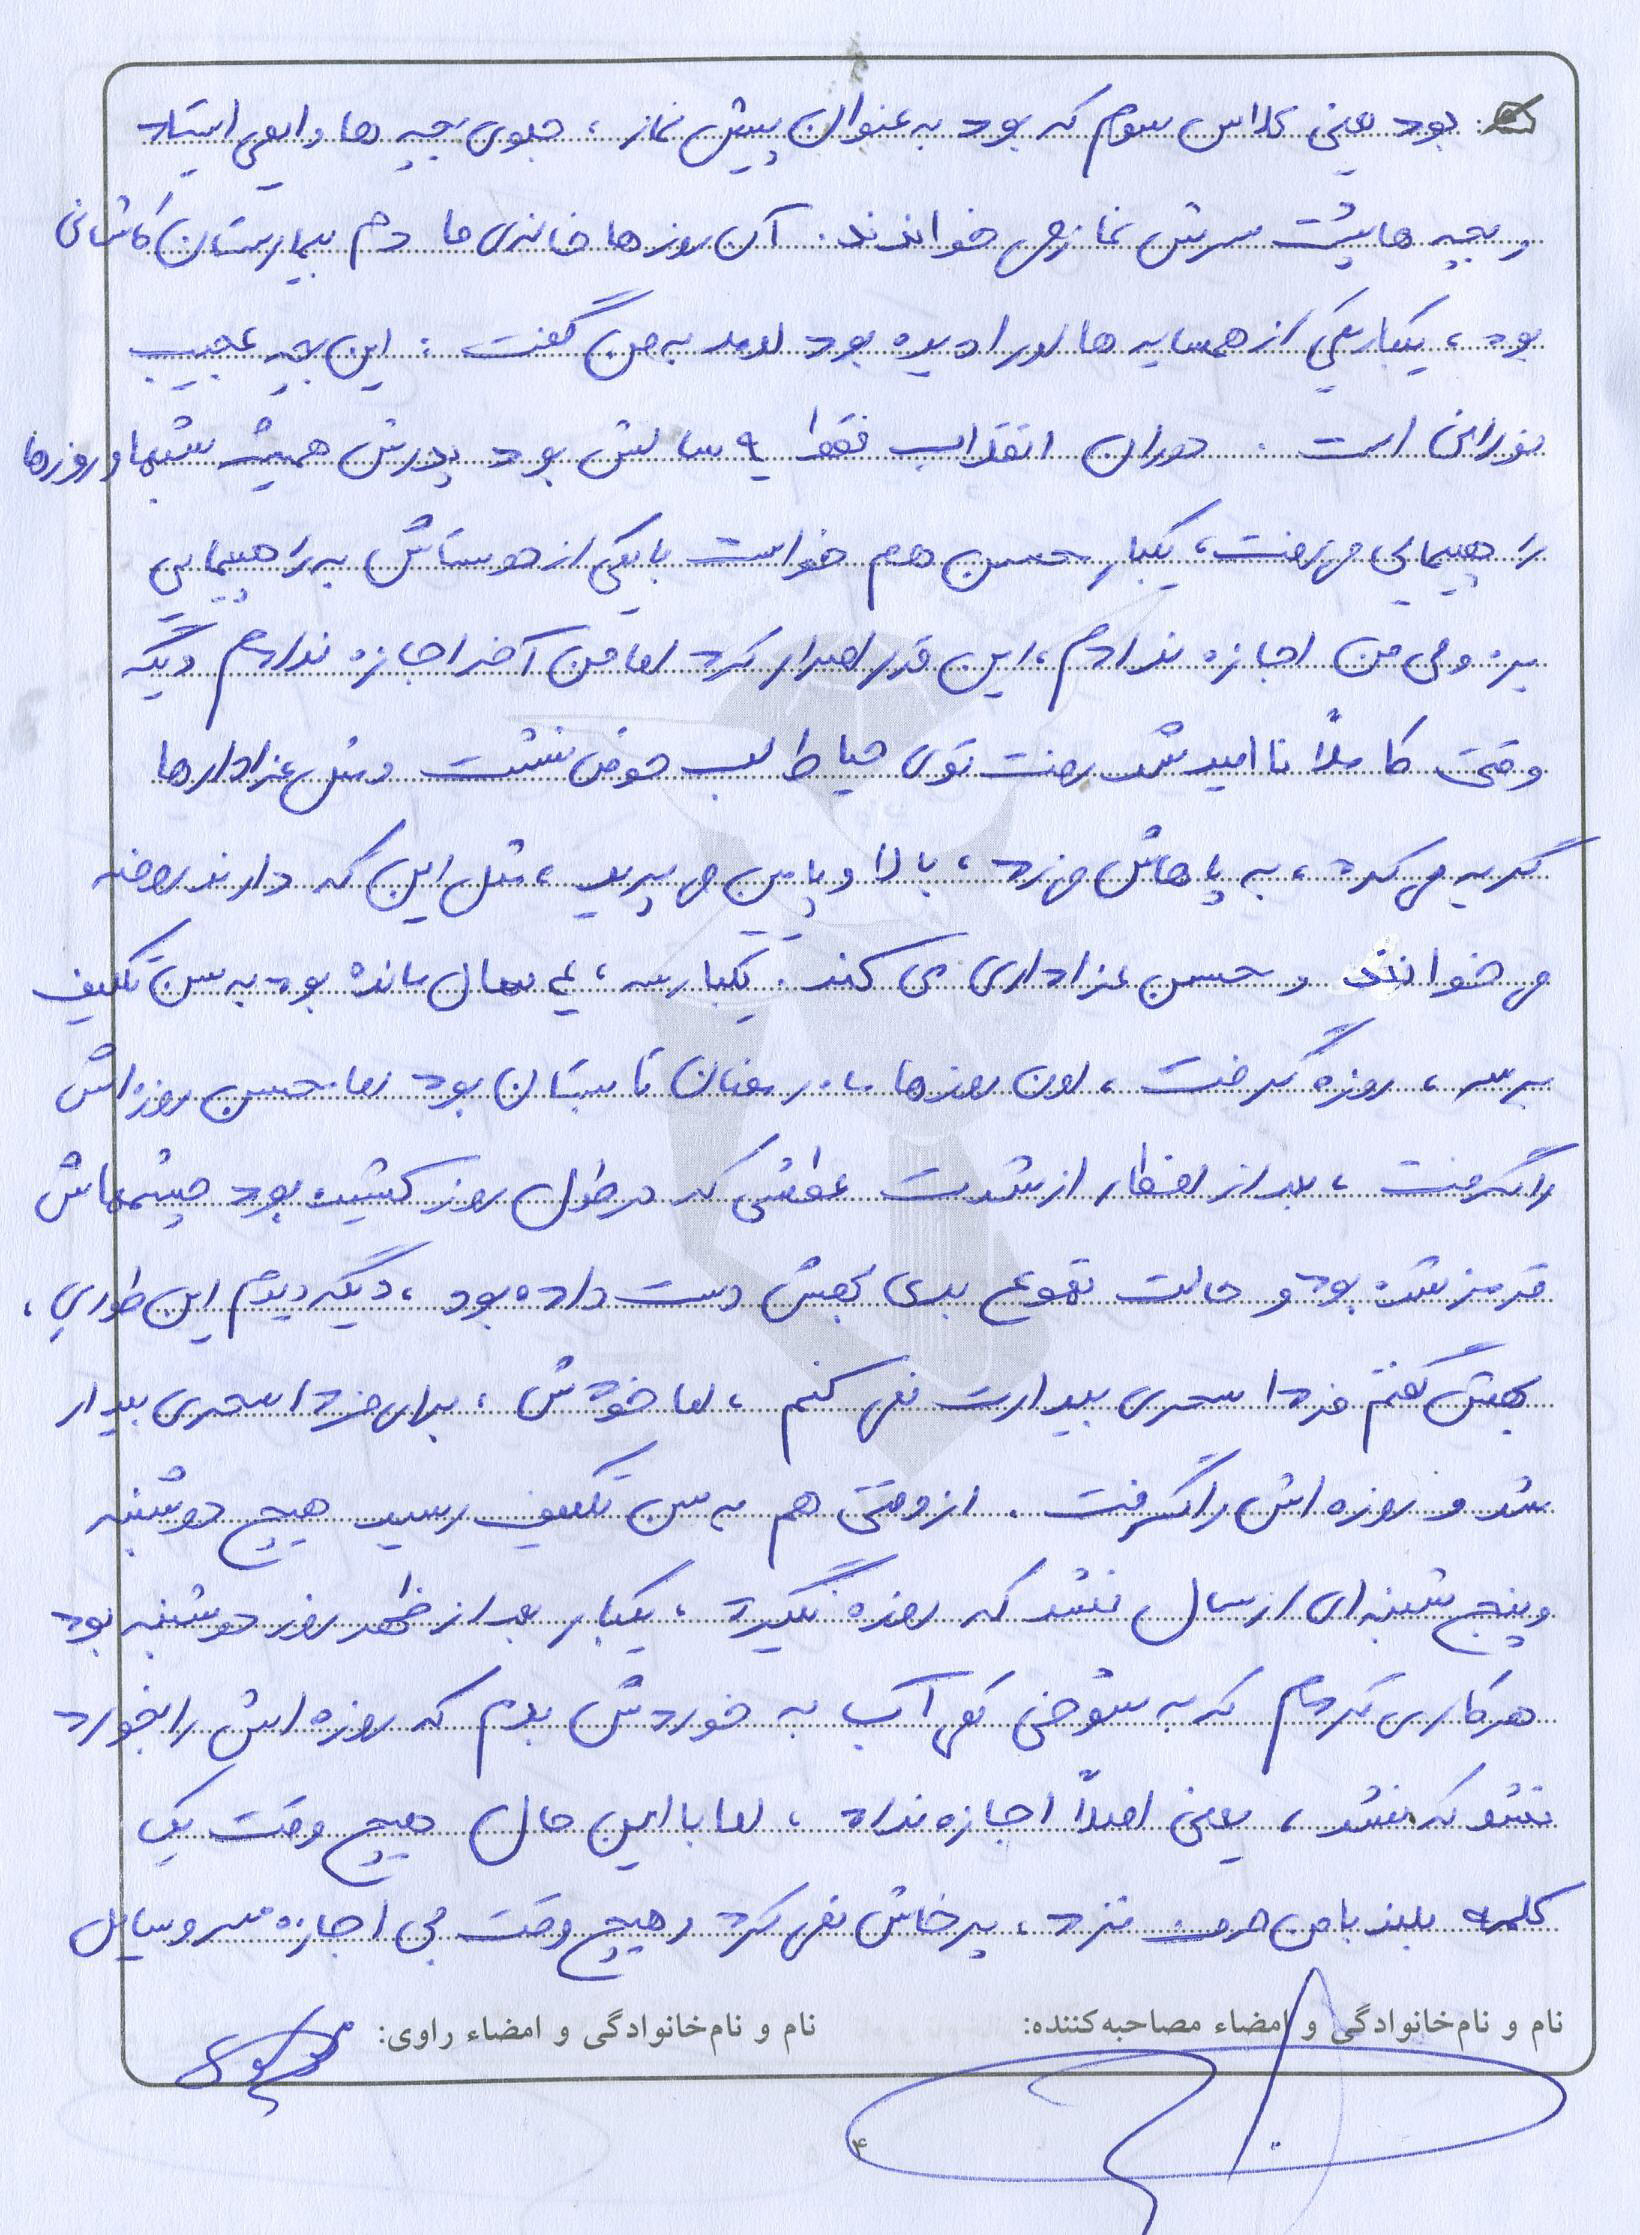 بود یعنی کلاس سوم که بود به عنوان پیش نماز، جلوی بچه ها وا می ایستاد
و بچه ها پشت سرش نماز می خواندند. آن روزها خانه ی ما دم بیمارستان کاشانی
بود، یکبار یکی از همسایه ها اورا دیده بود اومد به من گفت: این بچه عجیب
نورانی است. دوران انقلاب فقط ۹ سالش بود پدرش همیشه شبها و روزها
راهپیمایی می رفت، یکبار حسن هم خواست با یکی از دوستاش به راهپیمایی
بره ولی من اجازه ندادم، این قدر اصرار کرد اما من آخر اجازه ندادم دیگه
وقتی کاملاً ناامید شد رفت توی حیاط لب حوض نشست و مثل عزادارها
گریه می کرد، به پاهاش می زد، بالا و پایین می پرید، مثل این که دارند روضه
می خوانند و حسن عزاداری می کند. یکبار سه، ۴ سال مانده بود به سن تکلیف
برسه، روزه گرفت، اون روزها ماه رمضان تابستان بود اما حسن روزه اش
را گرفت، بعد از افطار از شدت عطشی که در طول روز کشیده بود چشمهاش
قرمز شده بود و حالت تهوع بدی بهش دست داده بود، دیگه دیدم این طوریه،
بهش گفتم فردا سحری بیدارت نمی کنم، اما خودش، برای فردا سحری بیدار
شد و روزه اش را گرفت. از وقتی هم به سن تکلیف رسید هیچ دوشنبه
و پنج شنبه ای از سال نشد که روزه نگیرد، یکبار بعد از ظهر روز دوشنبه بود
هر کاری کردم که به شوخی کمی آب به خوردش بدم که روزه اش را بخورد
نشد که نشد، یعنی اصلاً اجازه نداد، اما با این حال هیچ وقت یک
کلمه بلند با من حرف نزد، پرخاش نمی کرد و هیچ وقت بی اجازه سر وسایل
نام و نام‌خانوادگی و امضاء مصاحبه‌کننده: نام و نام‌خانوادگی و امضاء راوی:
۴